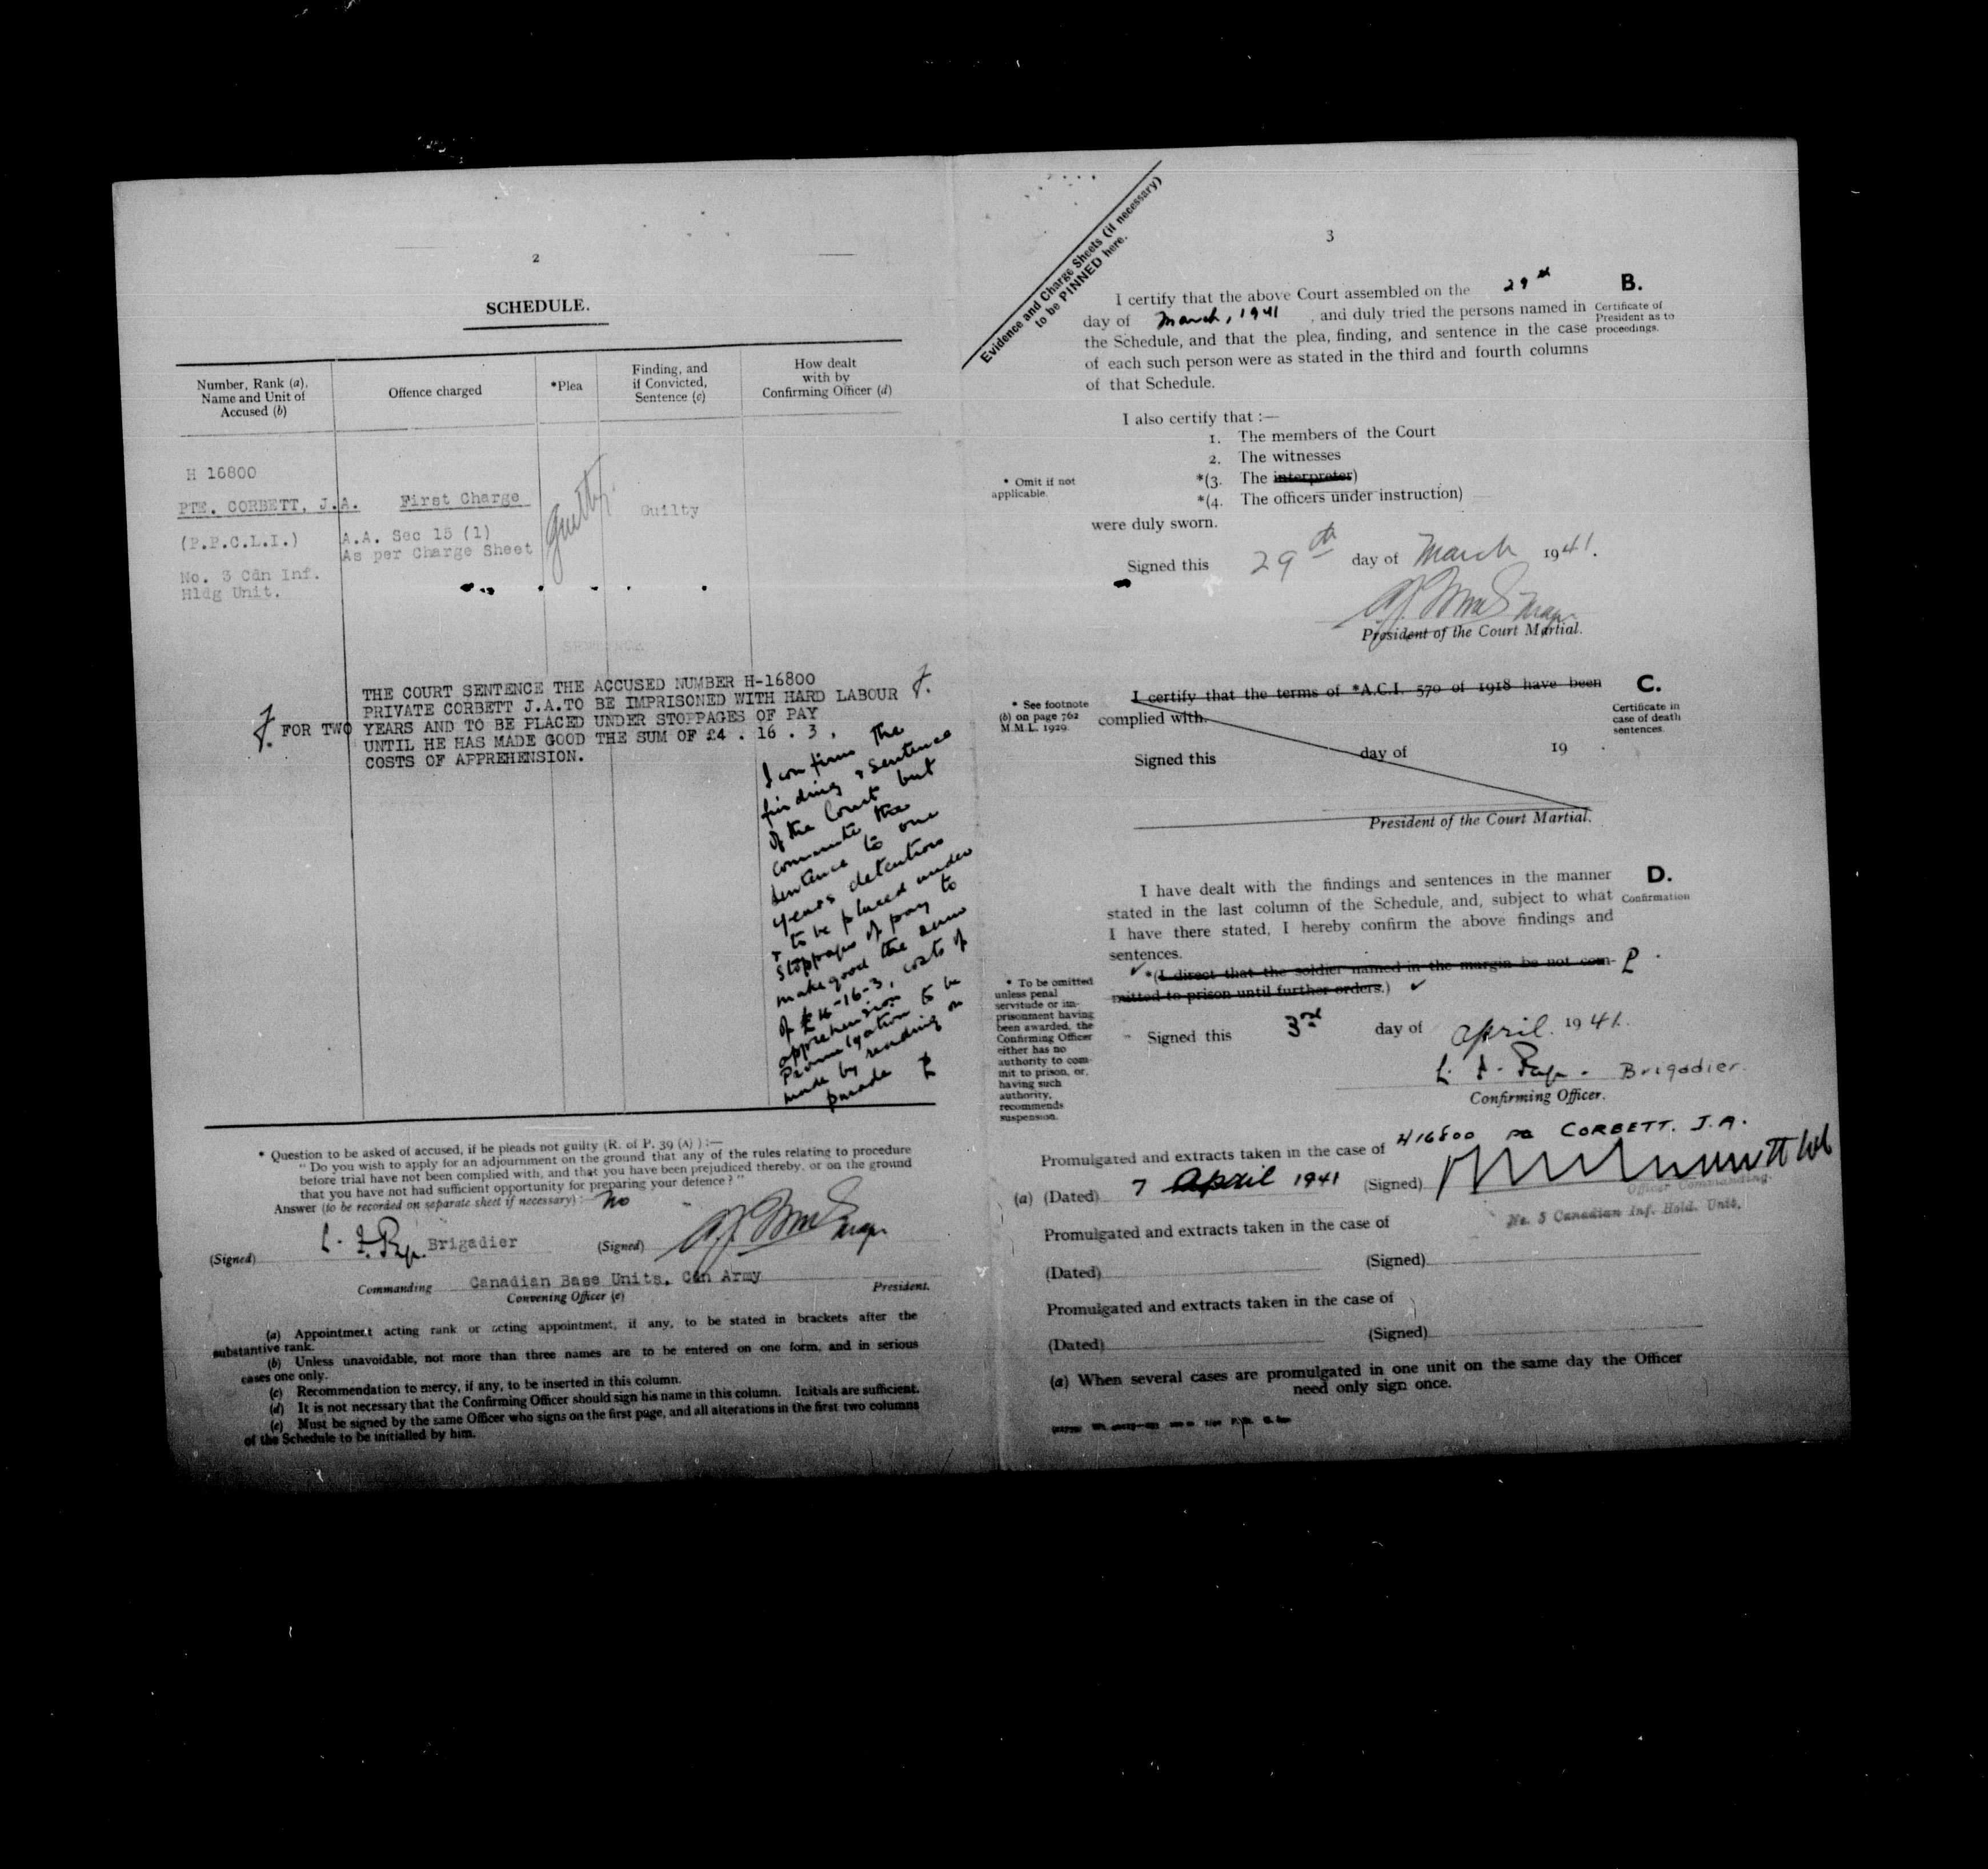 2
SCHEDULE.
Number, Rank (a),
Name and Unit of
Accused (b)
Offence charged
*Plea
Finding, and
if Convicted,
Sentence (c)
How dealt
with by
Confirming Officer (d)
H 16800
PTE. CORBETT, J.A.
(P.P.C.L.I.)
No. 3 Can Inf.
Hldg Unit.
First Charge
A.A. Sec 15 (1)
As per Charge Sheet
Guilty.
Guilty
SENTENCE.
THE COURT SENTENCE THE ACCUSED NUMBER H-16800
PRIVATE CORBETT J.A.TO BE IMPRISONED WITH HARD LABOUR
FOR TWO YEARS AND TO BE PLACED UNDER STOPPAGES OF PAY
UNTIL HE HAS MADE GOOD THE SUM OF £4 . 16 . 3 ,
COSTS OF APPREHENSION.
I confirm the
finding & sentence
of the Court but
commute the
sentence to one
years detention
& to be placed under
stoppages of pay to
make good the sum
of £4-16-3, costs of
apprehension
Promulgation to be
made by reading on
parade
* Question to be asked of accused, if he pleads not guilty (R. of P. 39 (A) ) :—
" Do you wish to apply for an adjournment on the ground that any of the rules relating to procedure
before trial have not been complied with, and that you have been prejudiced thereby, or on the ground
that you have not had sufficient opportunity for preparing your defence ? "
Answer (to be recorded on separate sheet if necessary) :— No
(Signed) Brigadier (Signed)
Commanding Canadian Base Units, Cdn Army President.
Convening Officer (e)
(a) Appointment acting rank or acting appointment, if any, to be stated in brackets after the
substantive rank.
(b) Unless unavoidable, not more than three names are to be entered on one form, and in serious
cases one only.
(c) Recommendation to mercy, if any, to be inserted in this column.
(d) It is not necessary that the Confirming Officer should sign his name in this column. Initials are sufficient.
(e) Must be signed by the same Officer who signs on the first page, and all alterations in the first two columns
of the Schedule to be initialled by him.
Evidence and Charge Sheets (if necessary)
to be PINNED here.
3
I certify that the above Court assembled on the 29th
day of March, 1941 , and duly tried the persons named in
the Schedule, and that the plea, finding, and sentence in the case
of each such person were as stated in the third and fourth columns
of that Schedule.
B.
Certificate of
President as to
proceedings.
I also certify that :—
1. The members of the Court
2. The witnesses
*(3. The interpreter)
*(4. The officers under instruction)
* Omit if not
applicable.
were duly sworn.
Signed this 29th day of March 1941.
President of the Court Martial.
* See footnote
(b) on page 762
M.M.L. 1929.
I certify that the terms of *A.C.I. 570 of 1918 have been
complied with.
C.
Certificate in
case of death
sentences.
Signed this day of 19 .
President of the Court Martial.
I have dealt with the findings and sentences in the manner
stated in the last column of the Schedule, and, subject to what
I have there stated, I hereby confirm the above findings and
sentences.
D.
Confirmation
*(I direct that the soldier named in the margin be not com-
mitted to prison until further orders.)
* To be omitted
unless penal
servitude or im-
prisonment having
been awarded, the
Confirming Officer
either has no
authority to com-
mit to prison, or,
having such
authority,
recommends
suspension.
Signed this 3rd day of April. 1941.
Brigadier.
Confirming Officer.
Promulgated and extracts taken in the case of H16800 CORBETT. J.A.
(a) (Dated) 7 April 1941 (Signed)
Officer Commanding.
No. 3 Canadian Inf. Hold. Unit.
Promulgated and extracts taken in the case of
(Dated) (Signed)
Promulgated and extracts taken in the case of
(Dated) (Signed)
(a) When several cases are promulgated in one unit on the same day the Officer
need only sign once.